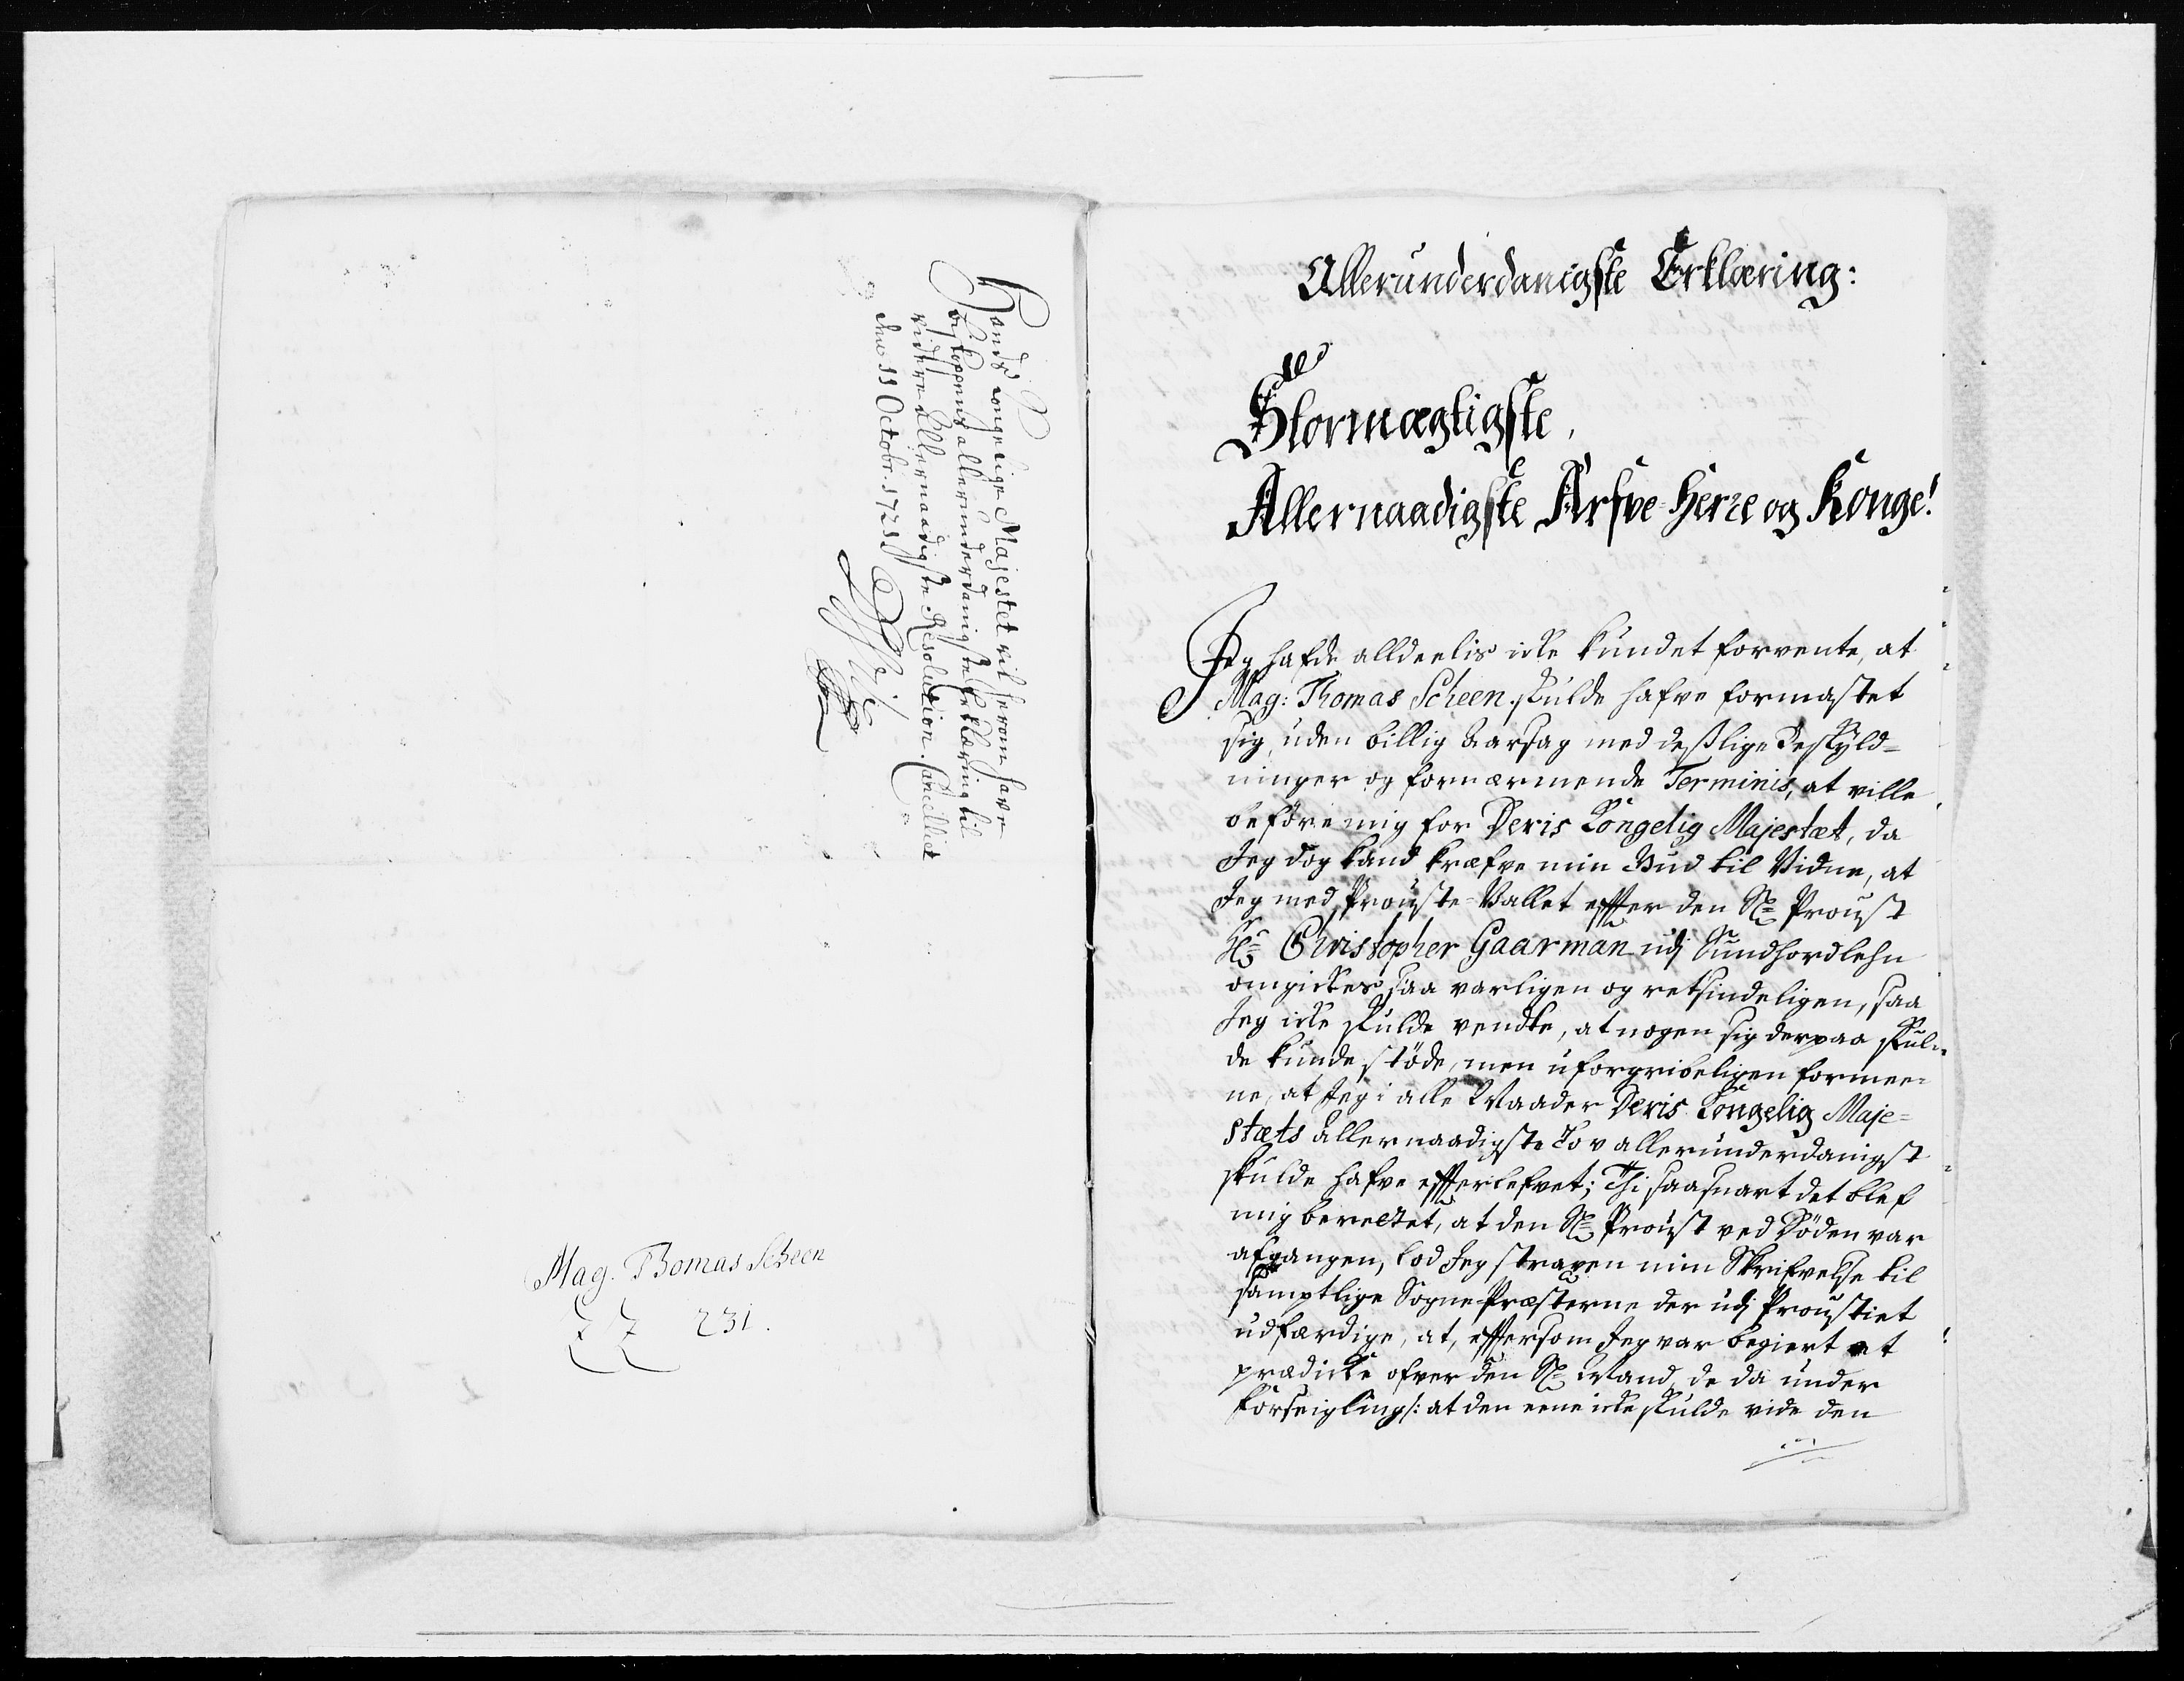 Hands Kongelige Majestet vil herom have
Biskoppens allerunderdanigste Erklæring til
videre Allernaadigste Resolution. Cancelliet
den 11 Octobr. 1721
Mag. Thomas Scheen
231.
Allerunderdanigste Erklæring:
Stormægtigste,
Allernaadigste Arfve-Herre og Konge!
Jeg hafde alldeelis icke kundet forvente, at
Mag: Thomas Scheen skulde hafve formastet
sig, uden billig Aarsag med deslige Beskyld-
ninger og fornærmende Terminis, at ville
beføre mig for Deris Kongelig Majestæt, da
Jeg dog kand kræfve min Gud til Vidne, at
Jeg med Prouste-Vallet effter den Sl: Proust
Hr: Christopher Gaarman udj Sundhordlehn
omgickes saa varligen og retsindeligen, saa
Jeg icke skulde vendte, at nogen sig derpaa skul-
de kunde støde, men uforgribeligen formee-
ne, at Jeg i alle Maader Deris Kongelig Maje-
stæts allernaadigste Lov allerunderdanigst
skulde hafve effterlefvet; Thi saasnart det blef
mig berettet, at den Sl: Proust ved Døden var
afgangen, lod Jeg straxen min Skrifvelse til
samptlige Sogne-Præsterne der udj Proustiet
udfærdige, at, efftersom Jeg var begiert at
prædicke ofver den Sl: Mand, de da under
Forseigling /: at den eene icke skulde vide den